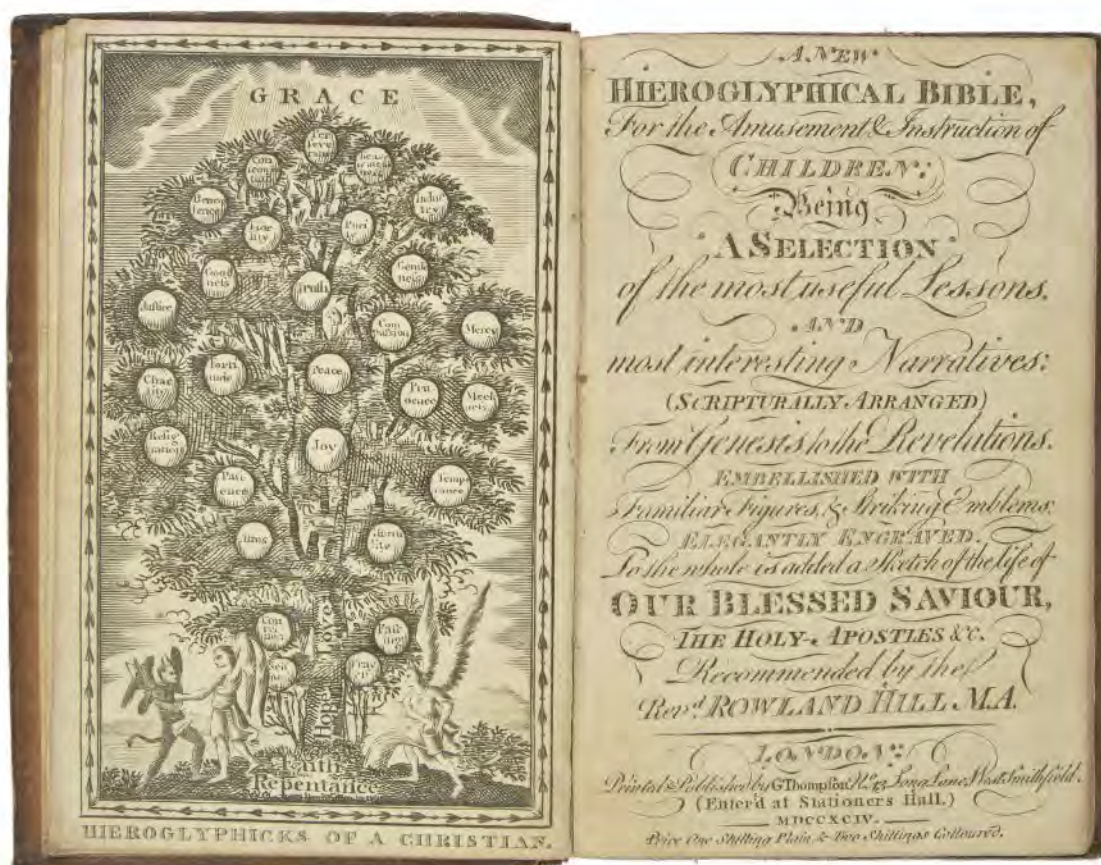 GRACE
Per
seve
rance
Con
Indus
try
Puri
ty
Good
ness
Truth
Gentle
ness
Justice
Com
passion
Mercy
Forti
tude
Peace
Char
ity
Meek
ness
Resig
nation
Joy
Pati
ence
Temp
erance
Fast
ing
Pray
er
Love
Hope
Faith
Repentance
HIEROGLYPHICKS OF A CHRISTIAN.
A NEW
HIEROGLYPHICAL BIBLE,
For the Amusement & Instruction of
CHILDREN:
Being
A SELECTION
of the most useful Lessons.
AND
most interesting Narratives:
(SCRIPTURALLY ARRANGED)
From Genesis to the Revelations.
EMBELLISHED WITH
Familiar Figures, & Striking Emblems:
ELEGANTLY ENGRAVED.
To the whole is added a Sketch of the life of
OUR BLESSED SAVIOUR,
THE HOLY APOSTLES &c.
Recommended by the
Revd. ROWLAND HILL M.A.
LONDON:
Printed & Published by G Thompson No. 43 Long Lane, West Smithfield.
(Enter'd at Stationers Hall.)
MDCCXCIV.
Price One Shilling Plain & Two Shillings Coloured.